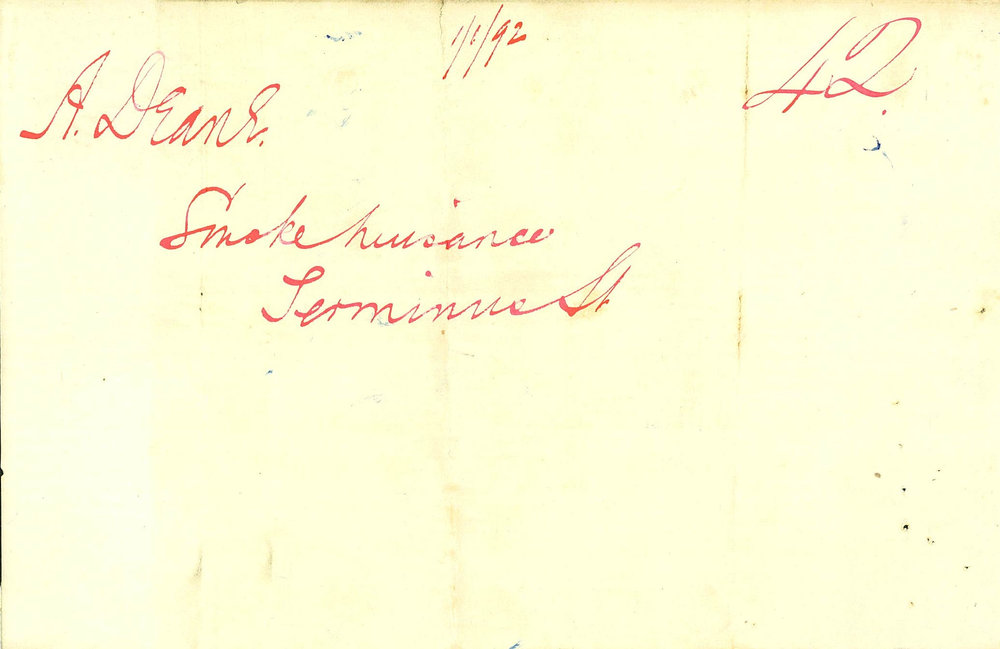 1/1/92
42.
A. Deane.
Smoke nuisance
Terminus St